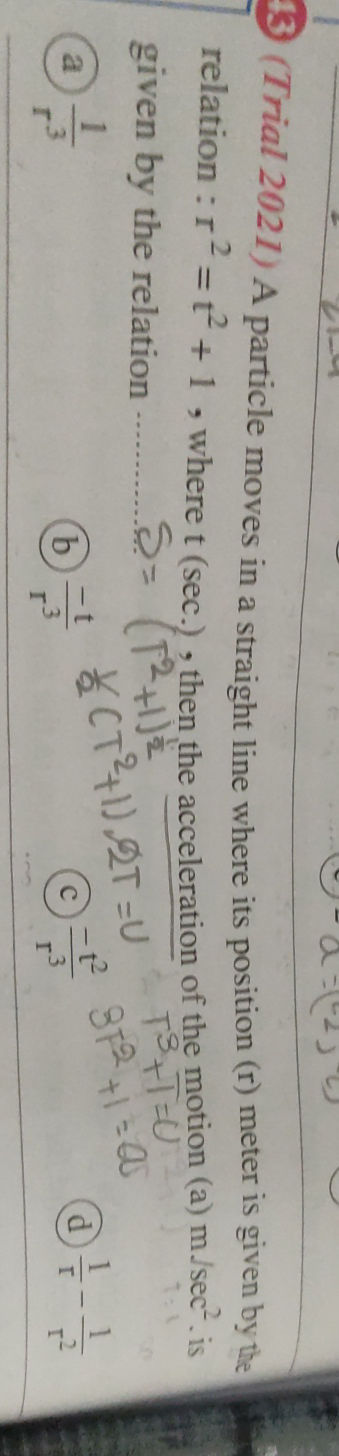 43 (Trial 2021) A particle moves in a straight line where its position (r) meter is given by the
relation : r² = t² + 1 , where t (sec.) , then the acceleration of the motion (a) m./sec². is
given by the relation ............
S = (T²+1)^½
½ (T²+1) 2T = U
T³+1=U
3T²+1=a
a 1/r³
b -t/r³
c -t²/r³
d 1/r - 1/r²